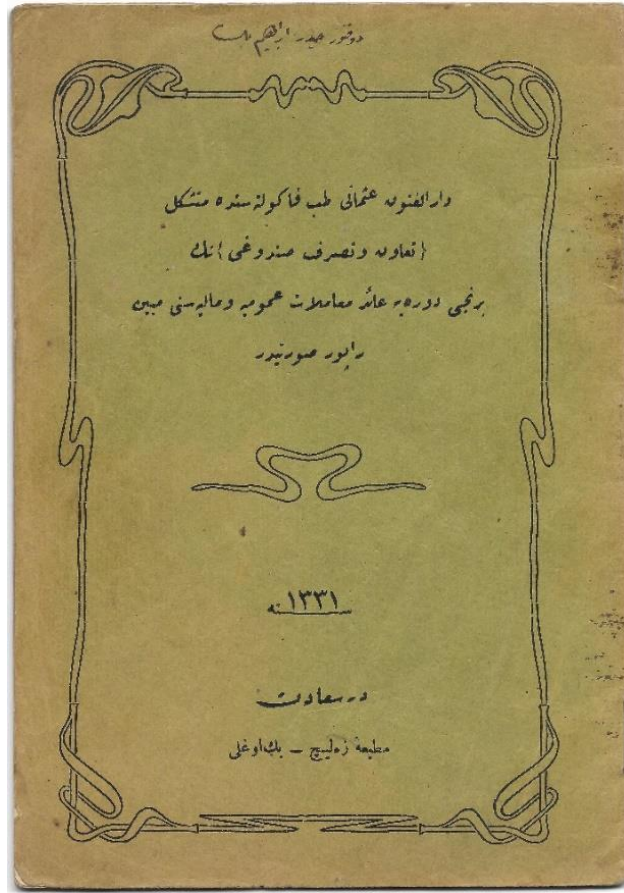 دوقتور حيدر ابراهيم بك
دارالفنون عثمانى طب فاكولته‌سنده متشكل
(تعاون وتصرف صندوغى) نك
برنجى دوره‌يه عائد معاملات عموميه وماليه‌سنى مبين
راپور صورتيدر
١٣٣١ سنه
درسعادت
مطبعهٔ زه‌ليچ – بك اوغلى